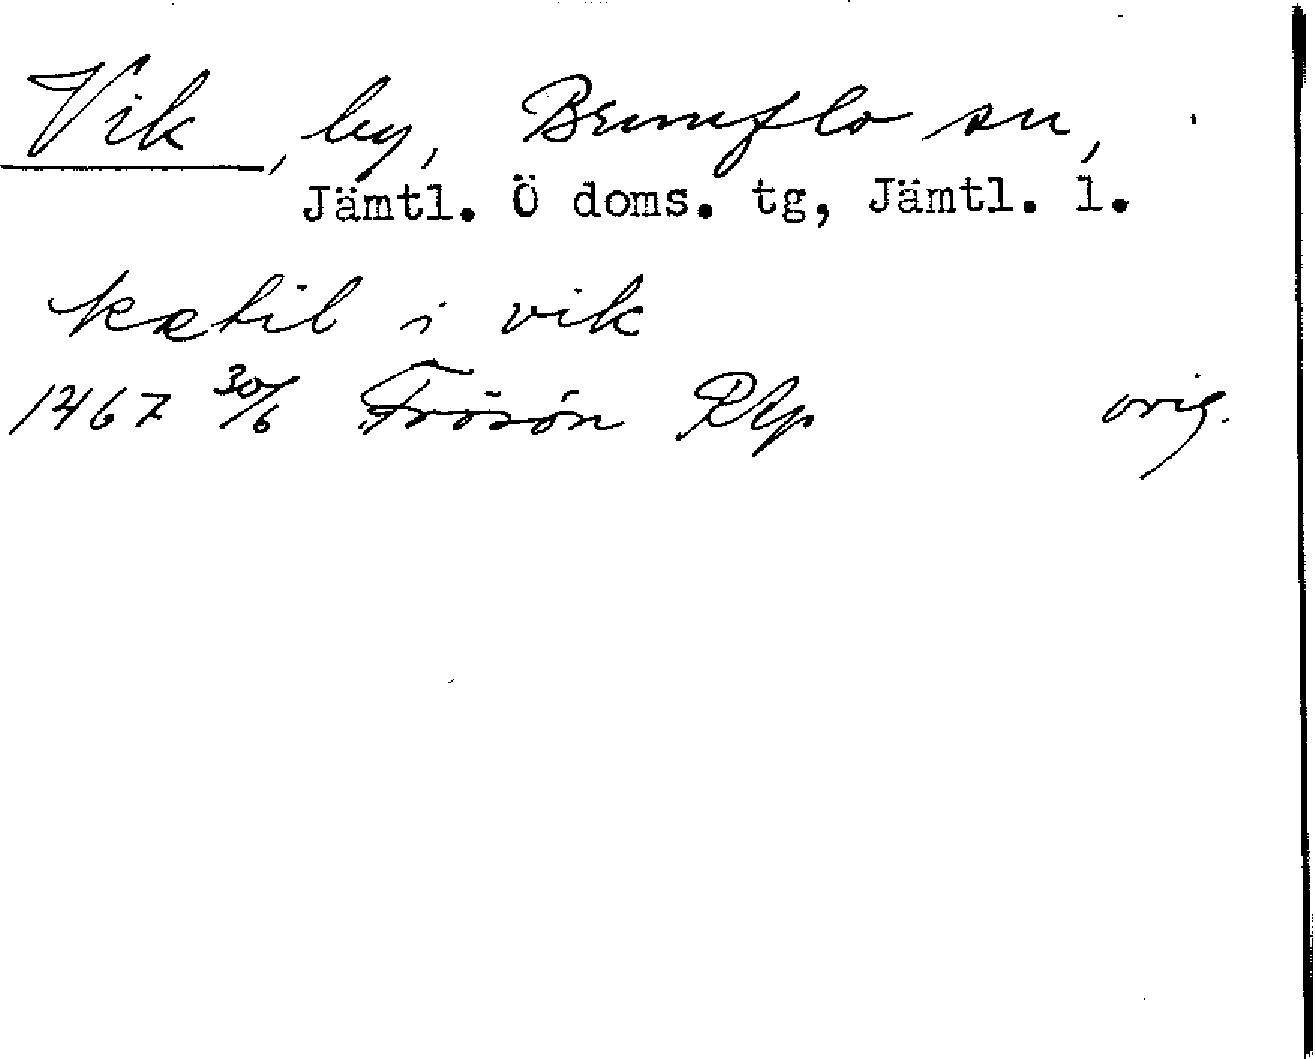 Vik, by, Brunflo sn,
Jämtl. Ö doms. tg, Jämtl. l.
kætil i vik
1467 30/6 Frösön RAp orig.